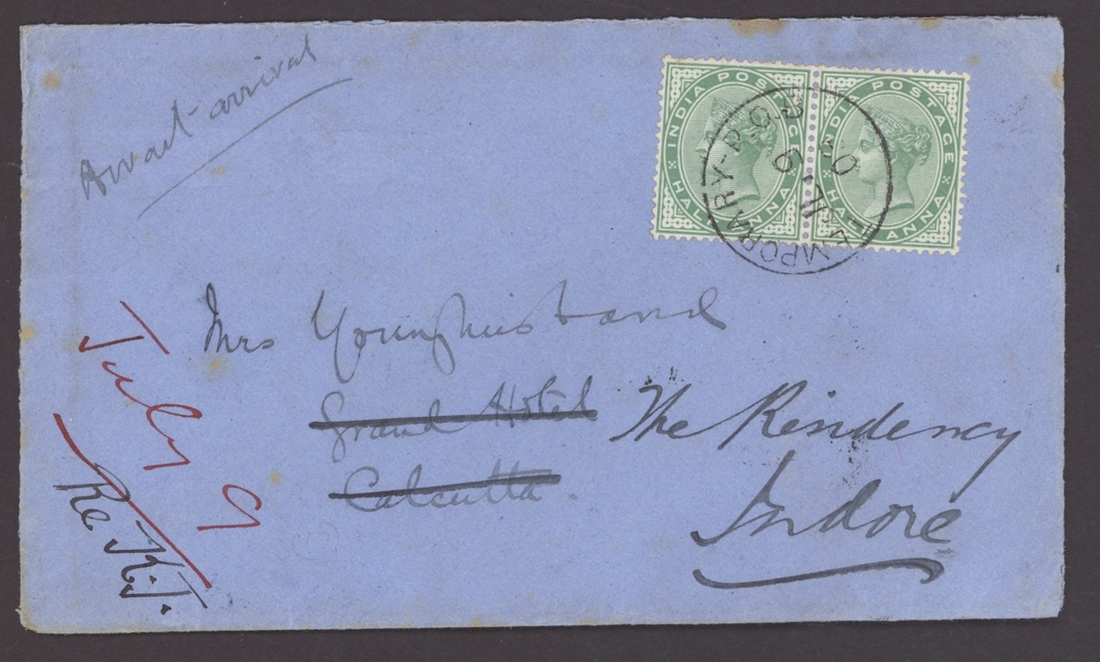 Await arrival
INDIA POSTAGE
HALF ANNA
INDIA POSTAGE
HALF ANNA
TEMPORARY-P.O.
9
03
Mrs Younghusband
Grand Hotel
Calcutta.
The Residency
Indore
July 9
Re